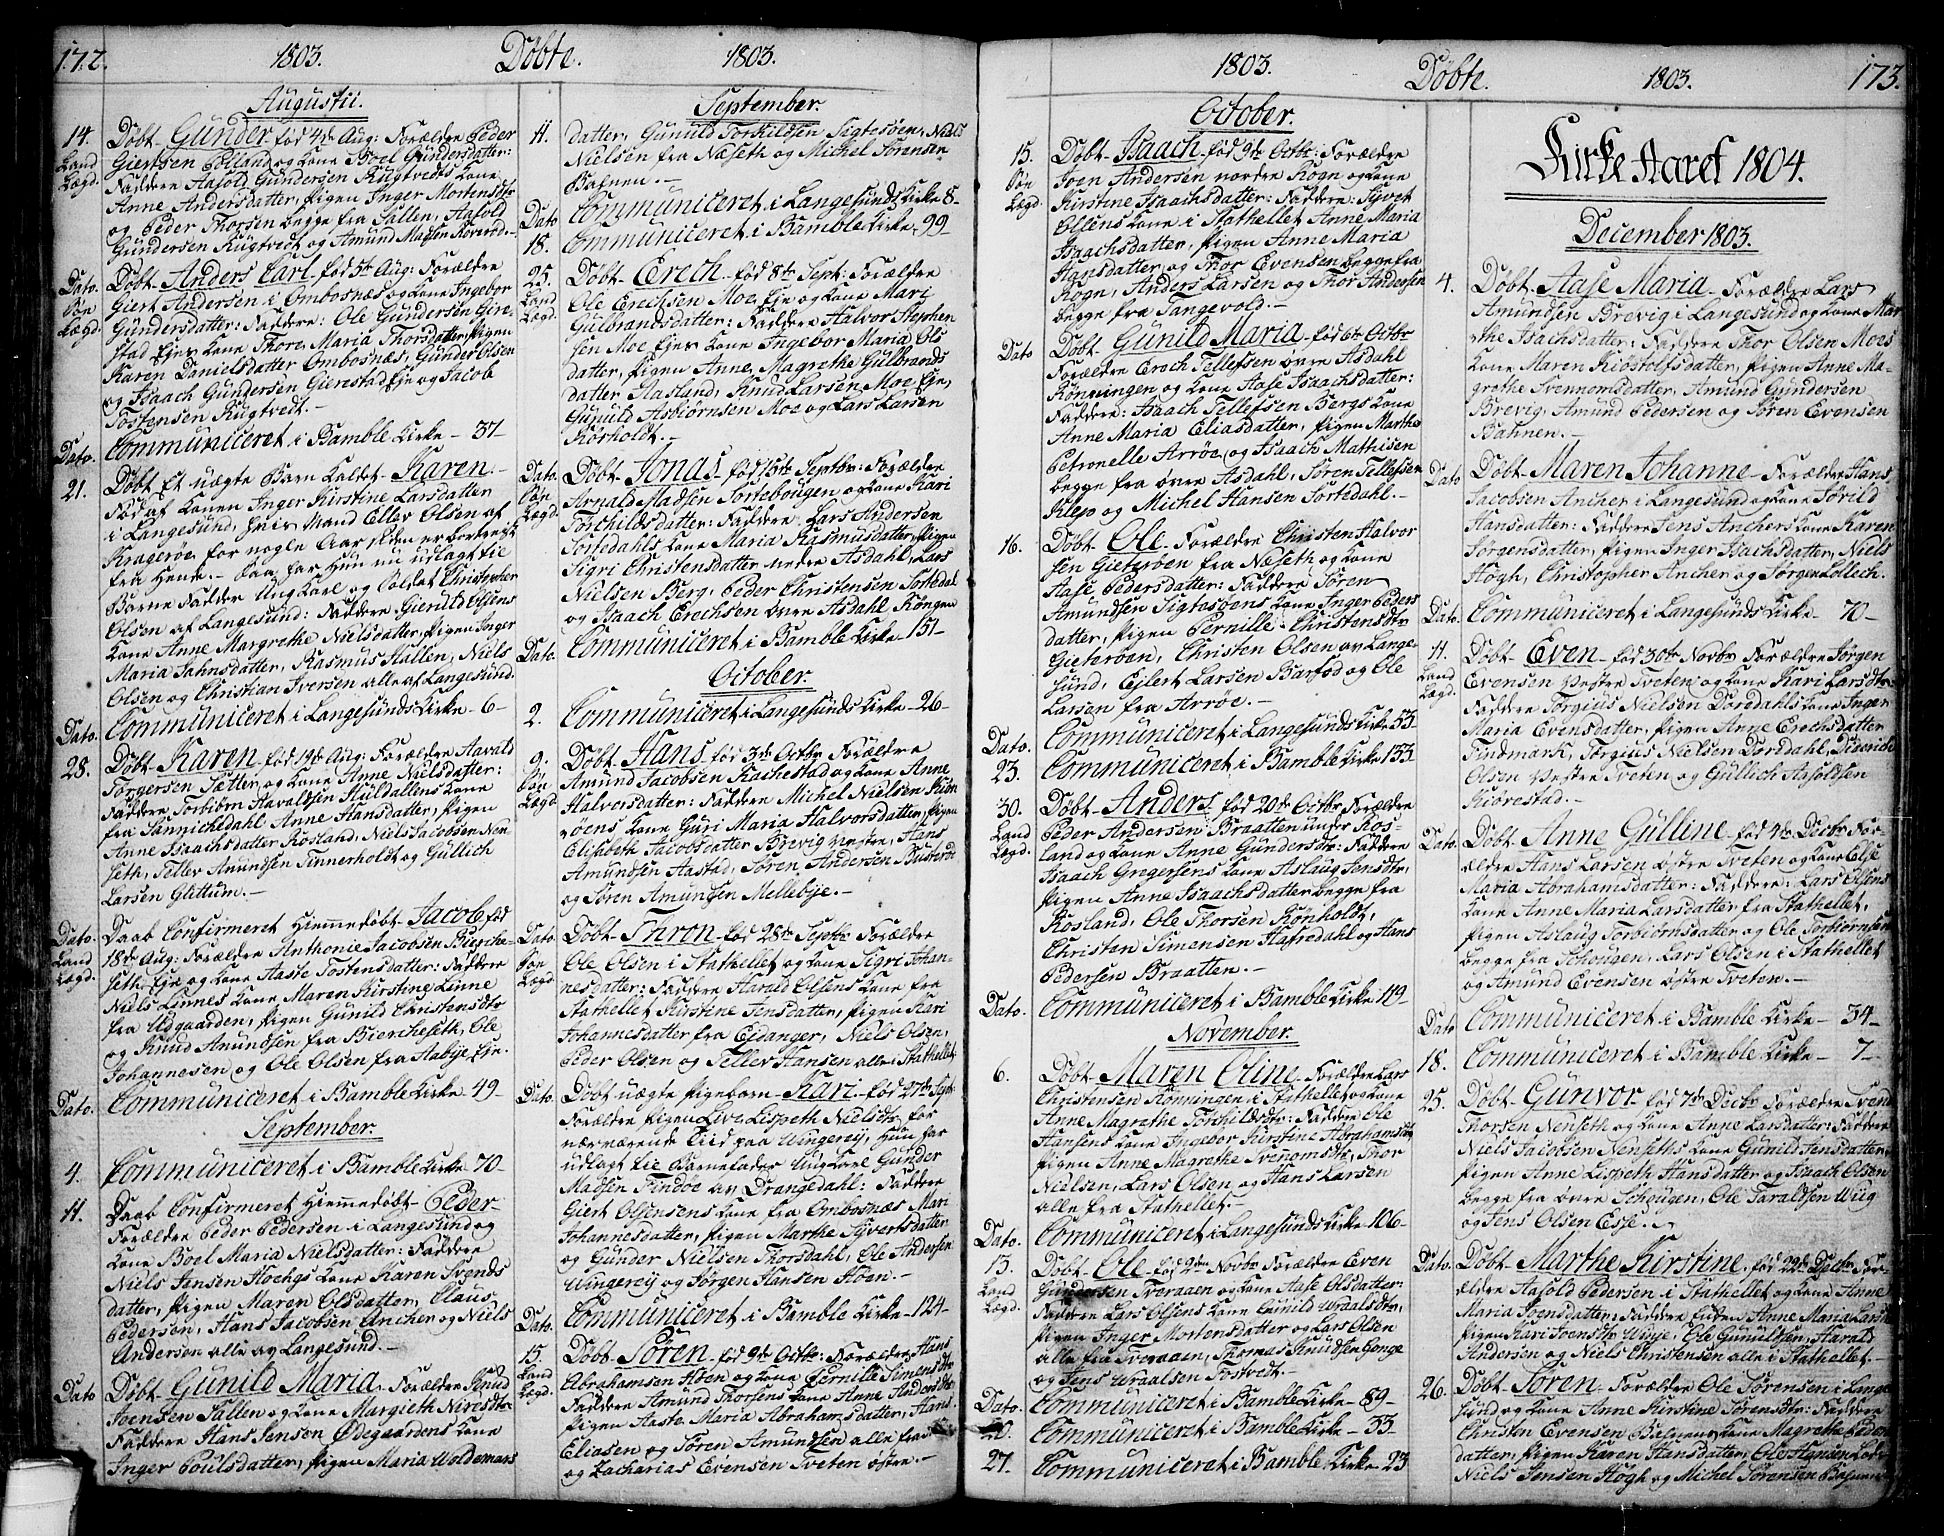 172. 1803. Döbte. 1803.
Augustii.
14. Döbt Gunder fød 4de Aug: Forældre Peder
Land Giertsen og Kone Boel Gundersdatter:
Lægd. Faddere Aasold Gundersen Rugtvedts Kone
Anne Andersdatter, Pigen Inger Mortensdtr
og Peder Thorsen begge fra Sallen, Aasold
Gundersen Rugtvedt og Amund Madsen
Dato. Döbt Anders Carl fød 5te Aug: Forældre
Søn Giert Andersen i Ombosnæs og Kone Ingebor
Lægd. Gundersdatter: Faddere: Ole Gundersen Gire-
stad Ejes Kone Thore Maria Thorsdatter, Pigen
Karen Danielsdatter Ombosnæs, Gunder Olsen
og Isaach Gundersen Gierestad Eje og Jacob
Tostensen Rugtvedt.
Dato. Communiceret i Bamble Kirke - 37 -
21. Döbt Et uægte Barn kaldet Karen.
Fød af Konen Inger Kirstine Larsdatter
i Langesund, hvis Mand Ellev Olsen af
Kragerøe for nogle Aar siden er bortreist
fra hende. - Saa har hun nu udlagt tie
Barne Fadder Ung Karl og Soldat Christopher
Olsen af Langesund: Faddere Gieruld Olsens
Kone Anne Margrethe Nielsdatter, Pigen Inger
Maria Jahnsdatter, Rasmus Hallen, Niels
Olsen og Christian Iversen alle af Langesund.
Dato. Communiceret i Langesunds Kirke - 6 -
28. Döbt Karen fød 19de Aug: Forældre Aavald
Jørgersen Sætter og Kone Anne Nielsdatter:
Faddere Torbiørn Havaldsen Huldallens Kone
fra Sannichedahl Anne Hansdatter, Pigen
Anne Isaachsdatter Rosland, Niels Jacobsen Nen
seth, Tellev Amundsen Tinnerholdt og Gullich
Larsen Glittum.
Dato. Daab Confirmeret Hiemmedøbt Jacob fød
Land 18de Aug: Forældre Anthonie Jacobsen Bierche-
Lægd. seth Eje og Kone Aaste Tostensdatter: Faddere
Niels Linnes Kone Maren Kirstine Linne
fra Udgaarden, Pigen Gunild Christensdtr
og Knud Amundsen fra Biercheseth, Ole
Johannesen og Ole Olsen fra Aabije Eje.
Dato. Communiceret i Bamble Kirke 49 -
September.
4. Communiceret i Bamble Kirke 70 -
11. Daab Confirmeret Hiemmedøbt Peder
Forældre Peder Pedersen i Langesund og
Kone Boel Maria Nielsdatter: Faddere
Niels Jensen Hochgs Kone Karen Svends
datter, Pigen Maren Olsdatter, Claus
Pedersen, Hans Jacobsen Ancher og Niels
Andersen alle av Langesund.
Dato Döbt Gunild Maria. Forældre Knud
Joensen Sallen og Kone Margieth Niresdtr
Faddere Hans Jensen Ødegaardens Kone
Inger Poulsdatter, Pigen Maria Woldemars
September.
11. datter, Gunuld Torkildsen Sigtesøen, Niels
Nielsen fra Næseth og Michel Sørensen
Basnen.
Dato Communiceret i Langesunds Kirke 8 -
18. Communiceret i Bamble Kirke 99
25. Döbt Erech fød 8de Sept: Forældre
Land Ole Erechsen Moe Eje og Kone Mari
Lægd. Gulbrandsdatter: Faddere Halvor Stephen
sen Moe Ejes Kone Ingebor Maria Ols
datter, Pigen Anne Magrethe Gulbrands
datter Aasland, Knud Larsen Moe Eje,
Gunuld Asbiørnsen Moe og Lars Larsen
Rørholdt.
Dato. Döbt Jonas fød 16de Septbr: Forældre
Søn Arnald Madsen Sortebougen og Kone Kari
Lægd. Torchildsdatter: Faddere Lars Andersen
Sortedahls Kone Maria Rasmusdatter, Pigen
Sigri Christensdatter nedre Asdahl, Lars
Nielsen Berg, Peder Christensen Sortedal
og Isaach Erechsen øvre Asdahl Røngen
Dato. Communiceret i Bamble Kirke 151 -
October.
2. Communiceret i Langesunds Kirke - 26 -
9. Döbt Hans fød 3de Octbr Forældre
Søn Amund Jacobsen Rachestad og Kone Anne
Lægd. Halvorsdatter: Faddere Michel Nielsen
røens Kone Guri Maria Halvorsdatter, Pigen
Elisabeth Jacobsdatter Brevig Vestre, Hans
Amundsen Aastad, Søren Andersen Bustrøe
og Søren Amundsen Mellebye.
Dato. Döbt Thron fød 28de Septbr Forældre
Søn Ole Olsen i Stathellet og Kone Sigri Johan-
Lægd. nesdatter: Faddere Harald Olsens Kone fra
Stathellet Kirstine Jensdatter, Pigen Kari
Johannesdatter fra Eidanger, Niels Olsen,
Peder Olsen og Tellev Hansen alle i Stathellet
Dato. Döbt uægte Pigebarn Kari fød 27de Sept:
Forældre Pigen Live Lisbeth Nielsdtr for
nærværende Tiid paa Wingereij, hun har
udlagt tie Barnefader Ung Karl Gunder
Madsen Findøe av Drangedahl: Faddere
Giert Olsensens Kone fra Ombosnæs Mari
Johannesdatter, Pigen Marthe Syvertsdatter
og Gunder Nielsen Thorsdahl, Ole Andersen
Wingereij og Jørgen Hansen Høen.
Dato. Communiceret i Bamble Kirke - 124 -
15. Döbt Søren fød 9de Octbr: Forældre Hans
Land Abrahamsen Høen og Kone Pernille Simensdtr
Lægd. Faddere Amund Thorsens Kone Anne Andersdtr
Pigen Aaste Maria Abrahamsdatter, Hans
Eliasen og Søren Amundsen alle fra
og Zacharias Evensen Tveten østre.
1803. Döbte. 1803. 173.
October.
15. Döbt Isaach fød 9de Octbr: Forældre
Søn Joen Andersen nordre Rogn og Kone
Lægd. Kirstine Isaachsdatter: Faddere: Syvet
Olsens Kone i Stathellet Anne Maria
Isaachsdatter, Pigen Anne Maria
Hansdatter og Thor Evensen begge fra
Rogn, Anders Larsen og Thor Andersen
begge fra Tangevold.
Dato Döbt Gunild Maria fød 6te Octbr
Forældre Erech Tellefsen øvre Asdahl
Rønningen og Kone Aase Isaachsdatter:
Faddere: Isaach Tellefsen Bergs Kone
Anne Maria Eliasdatter, Pigen Marthe
Petronelle Arrøe, Isaach Mathisen
begge fra øvre Asdahl, Søren Tellefsen
Klep og Michel Hansen Sortedahl.
16. Döbt Ole Forældre Christen Halvor
sen Gieterøen fra Næseth og Kone
Aase Pedersdatter: Faddere Søren
Amundsen Sigtesøens Kone Inger Peders
datter, Pigen Pernille Christensdtr
Gieterøen, Christen Olsen av Lange-
sund, Ejlert Larsen Barfod og Ole
Larsen fra Arrøe.
Dato. Communiceret i Langesunds Kirke 53
23. Communiceret i Bamble Kirke 133
30. Döbt Anders fød 20de Octbr Forældre
Land Peder Andersen Braatten under Ros-
Lægd. land og Kone Anne Gundersdtr: Faddere
Isaach Gregersens Kone Aslaug Jensdtr,
Pigen Anne Isaachsdatter begge fra
Rosland, Ole Thorsen Rønholdt,
Christen Simensen Hafredahl og Hans
Pedersen Braatten.
Dato. Communiceret i Bamble Kirke 49 -
November.
6. Döbt Maren Oline. Forældre Lars
Christensen Rønningen i Stathellet og Kone
Anne Magrethe Torchildsdtr: Faddere Ole
Hansens Kone Ingebor Kirstine Abrahamsdtr
Pigen Anne Magrethe Svenomsdtr, Thor
Nielsen, Lars Olsen og Hans Larsen
alle fra Stathellet.
Dato. Communiceret i Langesunds Kirke - 106 -
13. Döbt Ole fød 2den Novbr Forældre Even
Land Gundersen Tveraaen og Kone Aase Olsdatter:
Lægd. Faddere Lars Olsens Kone Gunild Wraalsdtr,
Pigen Inger Mortensdatter og Lars Olsen
alle fra Tveraaen, Thomas Knudsen Gonge
og Jens Wraalsen Tostvedt.
Dato. Communiceret i Bamble Kirke - 89 -
20. Communiceret i Bamble Kirke - 33 -
27. Communiceret i Bamble Kirke - 23
Kirke Aaret 1804.
December 1803.
4. Döbt Aase Maria. Forældre Lars
Amundsen Brevig i Langesund og Kone Mar
the Isachsdatter: Faddere Thor Olsen Moes
Kone Maren Kiøstolfsdatter, Pigen Anne Ma-
grethe Svennomsdatter, Amund Gundersen
Brevig, Amund Pedersen og Søren Evensen
Bahnen.
Dato Döbt Maren Johanne Forældre Hans
Jacobsen Ancher i Langesund og Kone Sørild
Hansdatter: Faddere Jens Anchers Kone Karen
Jørgensdatter, Pigen Inger Isachsdatter, Niels
Høgh, Christopher Ancher og Jørgen Lollech.
Dato. Communiceret i Langesunds Kirke - 70 -
11. Döbt Even fød 30te Novbr Forældre Jørgen
Land Evensen Vestre Tveten og Kone Kari Larsdtr
Lægd. Faddere Torgius Nielsen Dordahls Kone Inger
Maria Evensdatter, Pigen Anne Erechsdatter
Findmark, Torgius Nielsen Dordahl, Diderich
Olsen Vestre Tveten og Gullich Aasoldsen
Kiørestad.
Dato. Döbt Anne Gulline fød 4de Decbr For-
ældre Hans Larsen østre Tveten og Kone Else
Maria Abrahamsdatter: Faddere: Lars Olsens
Kone Anne Maria Larsdatter fra Stathellet,
Pigen Aslaug Torbiørnsdatter og Ole Torbiørnsen
begge fra Schougen, Lars Olsen i Stathellet
og Amund Evensen østre Tveten.
Dato Communiceret i Bamble Kirke - 34 -
18. Communiceret i Bamble Kirke - 7 -
25. Döbt Gunvor fød 7de Decbr Forældre Svend
Thorsen Nenseth og Kone Anne Larsdatter: Faddere
Niels Jacobsen Nenseths Kone Gunild Jensdatter,
Pigen Anne Lisbeth Hansdatter og Isaach Olsen
begge fra øvre Schougen, Ole Taraldsen Wiig
og Jens Olsen Esse.
Dato. Döbt Marthe Kirstine fød 22de Decbr For-
ældre Aasold Pedersen i Stathellet og Kone Anne
Maria Iversdatter: Faddere Enken Anne Maria Larsdtr
Pigen Kari Joensdtr Winje, Ole Gunuldsen, Harald
Andersen og Niels Christensen alle i Stathellet.
26. Döbt Søren. Forældre Ole Sørensen i Lange
sund og Kone Anne Kirstine Sørensdtr: Faddere
Christen Evensen Basnens Kone Magrethe Peders
datter, Pigen Karen Hansdatter, Ole Hansen
Niels Jensen Høgh og Michel Sørensen Basnen